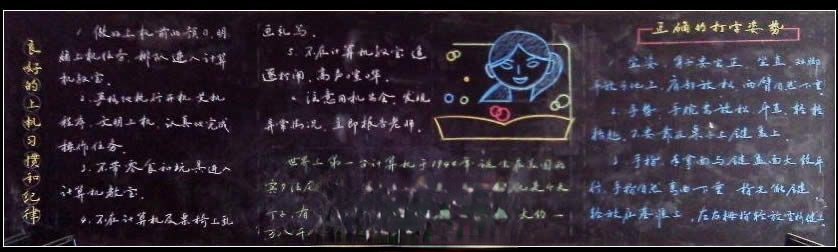 良好的上机习惯和纪律
1. 做好上机前的预习,明
确上机任务,排队进入计算
机教室。
2. 严格地执行开机关机
程序,文明上机,认真地完成
操作任务。
3. 不带零食和玩具进入
计算机教室。
4. 不在计算机及桌椅上乱
画乱写。
5. 不在计算机教室追
逐打闹,高声喧哗。
6. 注意用机安全,发现
异常情况,立即报告老师。
世界上第一台计算机于1946年诞生在美国的
宾夕法尼
大约一
正确的打字姿势
1. 坐姿 身子要坐正 坐直 双脚
平放于地上,肩部放松,两臂自然下垂
2. 手臂、手腕要放松、平直,轻轻
抬起,不要靠在桌子上/键盘上
3. 手指 手掌面与键盘面大致平
行,手指自然弯曲下垂
轻放在基准键上,左右拇指轻放空格键上